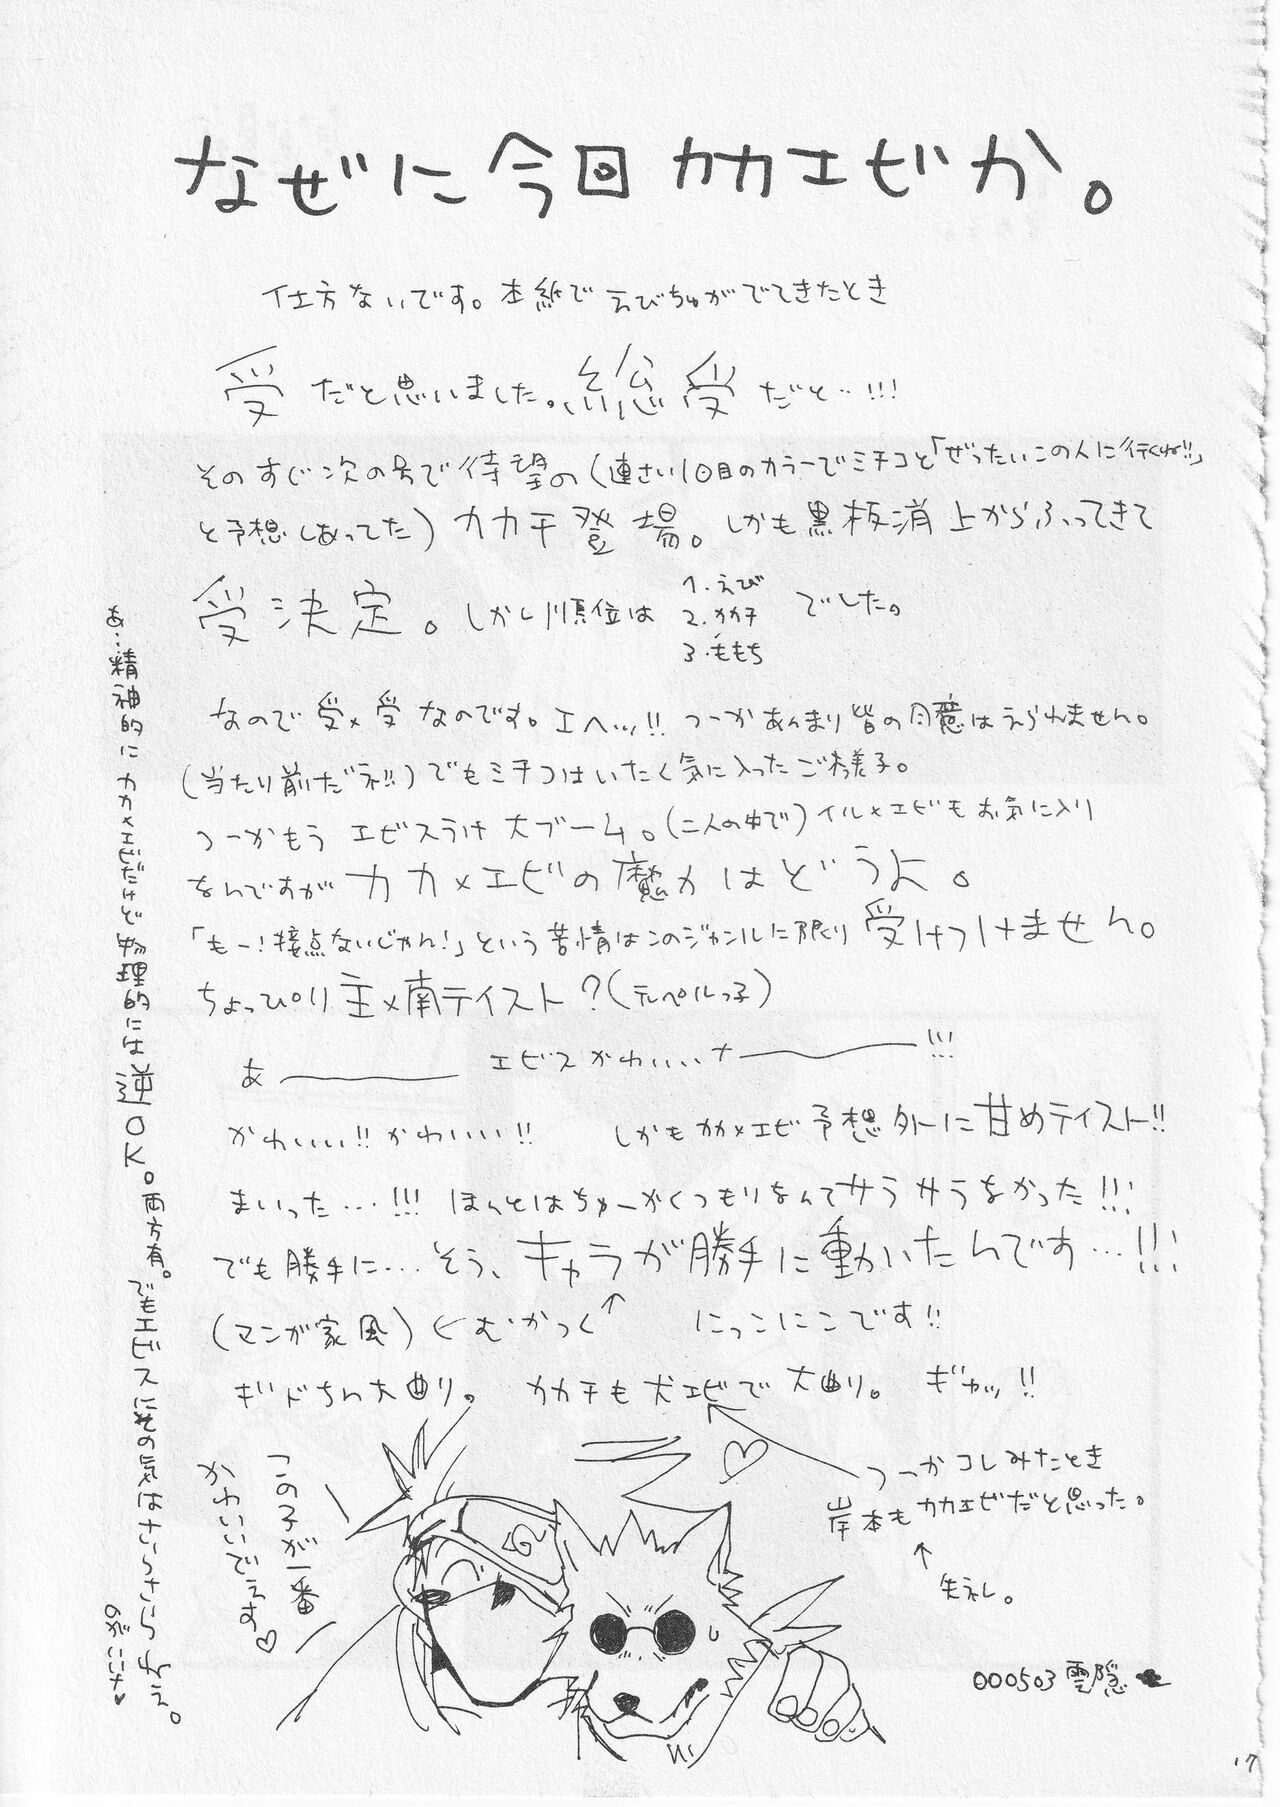 なぜに今回カカエビか。
仕方ないです。本紙でえびちゅがでてきたとき
受だと思いました。総受だと…!!!
そのすぐ次の号で待望の(連さい1回目のカラーでミチコと「ぜったいこの人に行くね!!」
と予想しあってた)カカチ登場。しかも黒板消上からふってきて
受決定。しかし順位は
1.えび
2.カカチ
3.ももち
でした。
なので受×受なのです。エヘッ!!つーかあんまり皆の同意はえられません。
(当たり前だネ!!)でもミチコはいたく気に入ったご様子。
つーかもうエビスうけ大ブーム。(二人の中で)イル×エビもお気に入り
なんですがカカ×エビの魔力はどうよ。
「もー!接点ないじゃん!」という苦情はこのジャンルに限り受けつけません。
ちょっぴり主×南テイスト?(テルペルっ子)
あーーー エビスかわいいナーーー!!!
かわいい!!かわいい!! しかもカカ×エビ予想外に甘めテイスト!!
まいった…!!!ほんとはちゅーかくつもりなんてサラサラなかった!!!
でも勝手に…そう、キャラが勝手に動いたんです…!!!
(マンガ家風)←むかつく↑ にっこにこです!!
ギドちん大曲り。カカチも犬エビで大曲り。ギャッ!!
つーかコレみたとき
岸本もカカエビだと思った。
↑
失ネし。
この子が一番
かわいいでぇす♡
000503 雲隠
あ…精神的にカカ×エビだけど物理的には逆OK。両方有。でもエビスにその気はさらさらナイ。
のがここナ♥
17